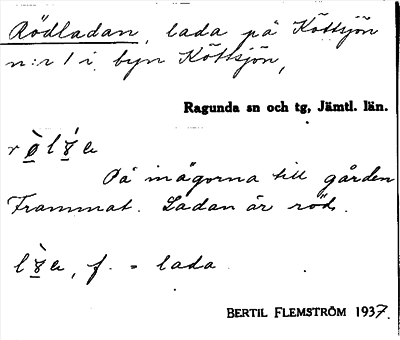 Rödladan, lada på Köttsjön
n:r 1 i byn Köttsjön,
Ragunda sn och tg, Jämtl. län.
På inägorna till gården
Frammat. Ladan är röd.
f. = lada
BERTIL FLEMSTRÖM 1937.